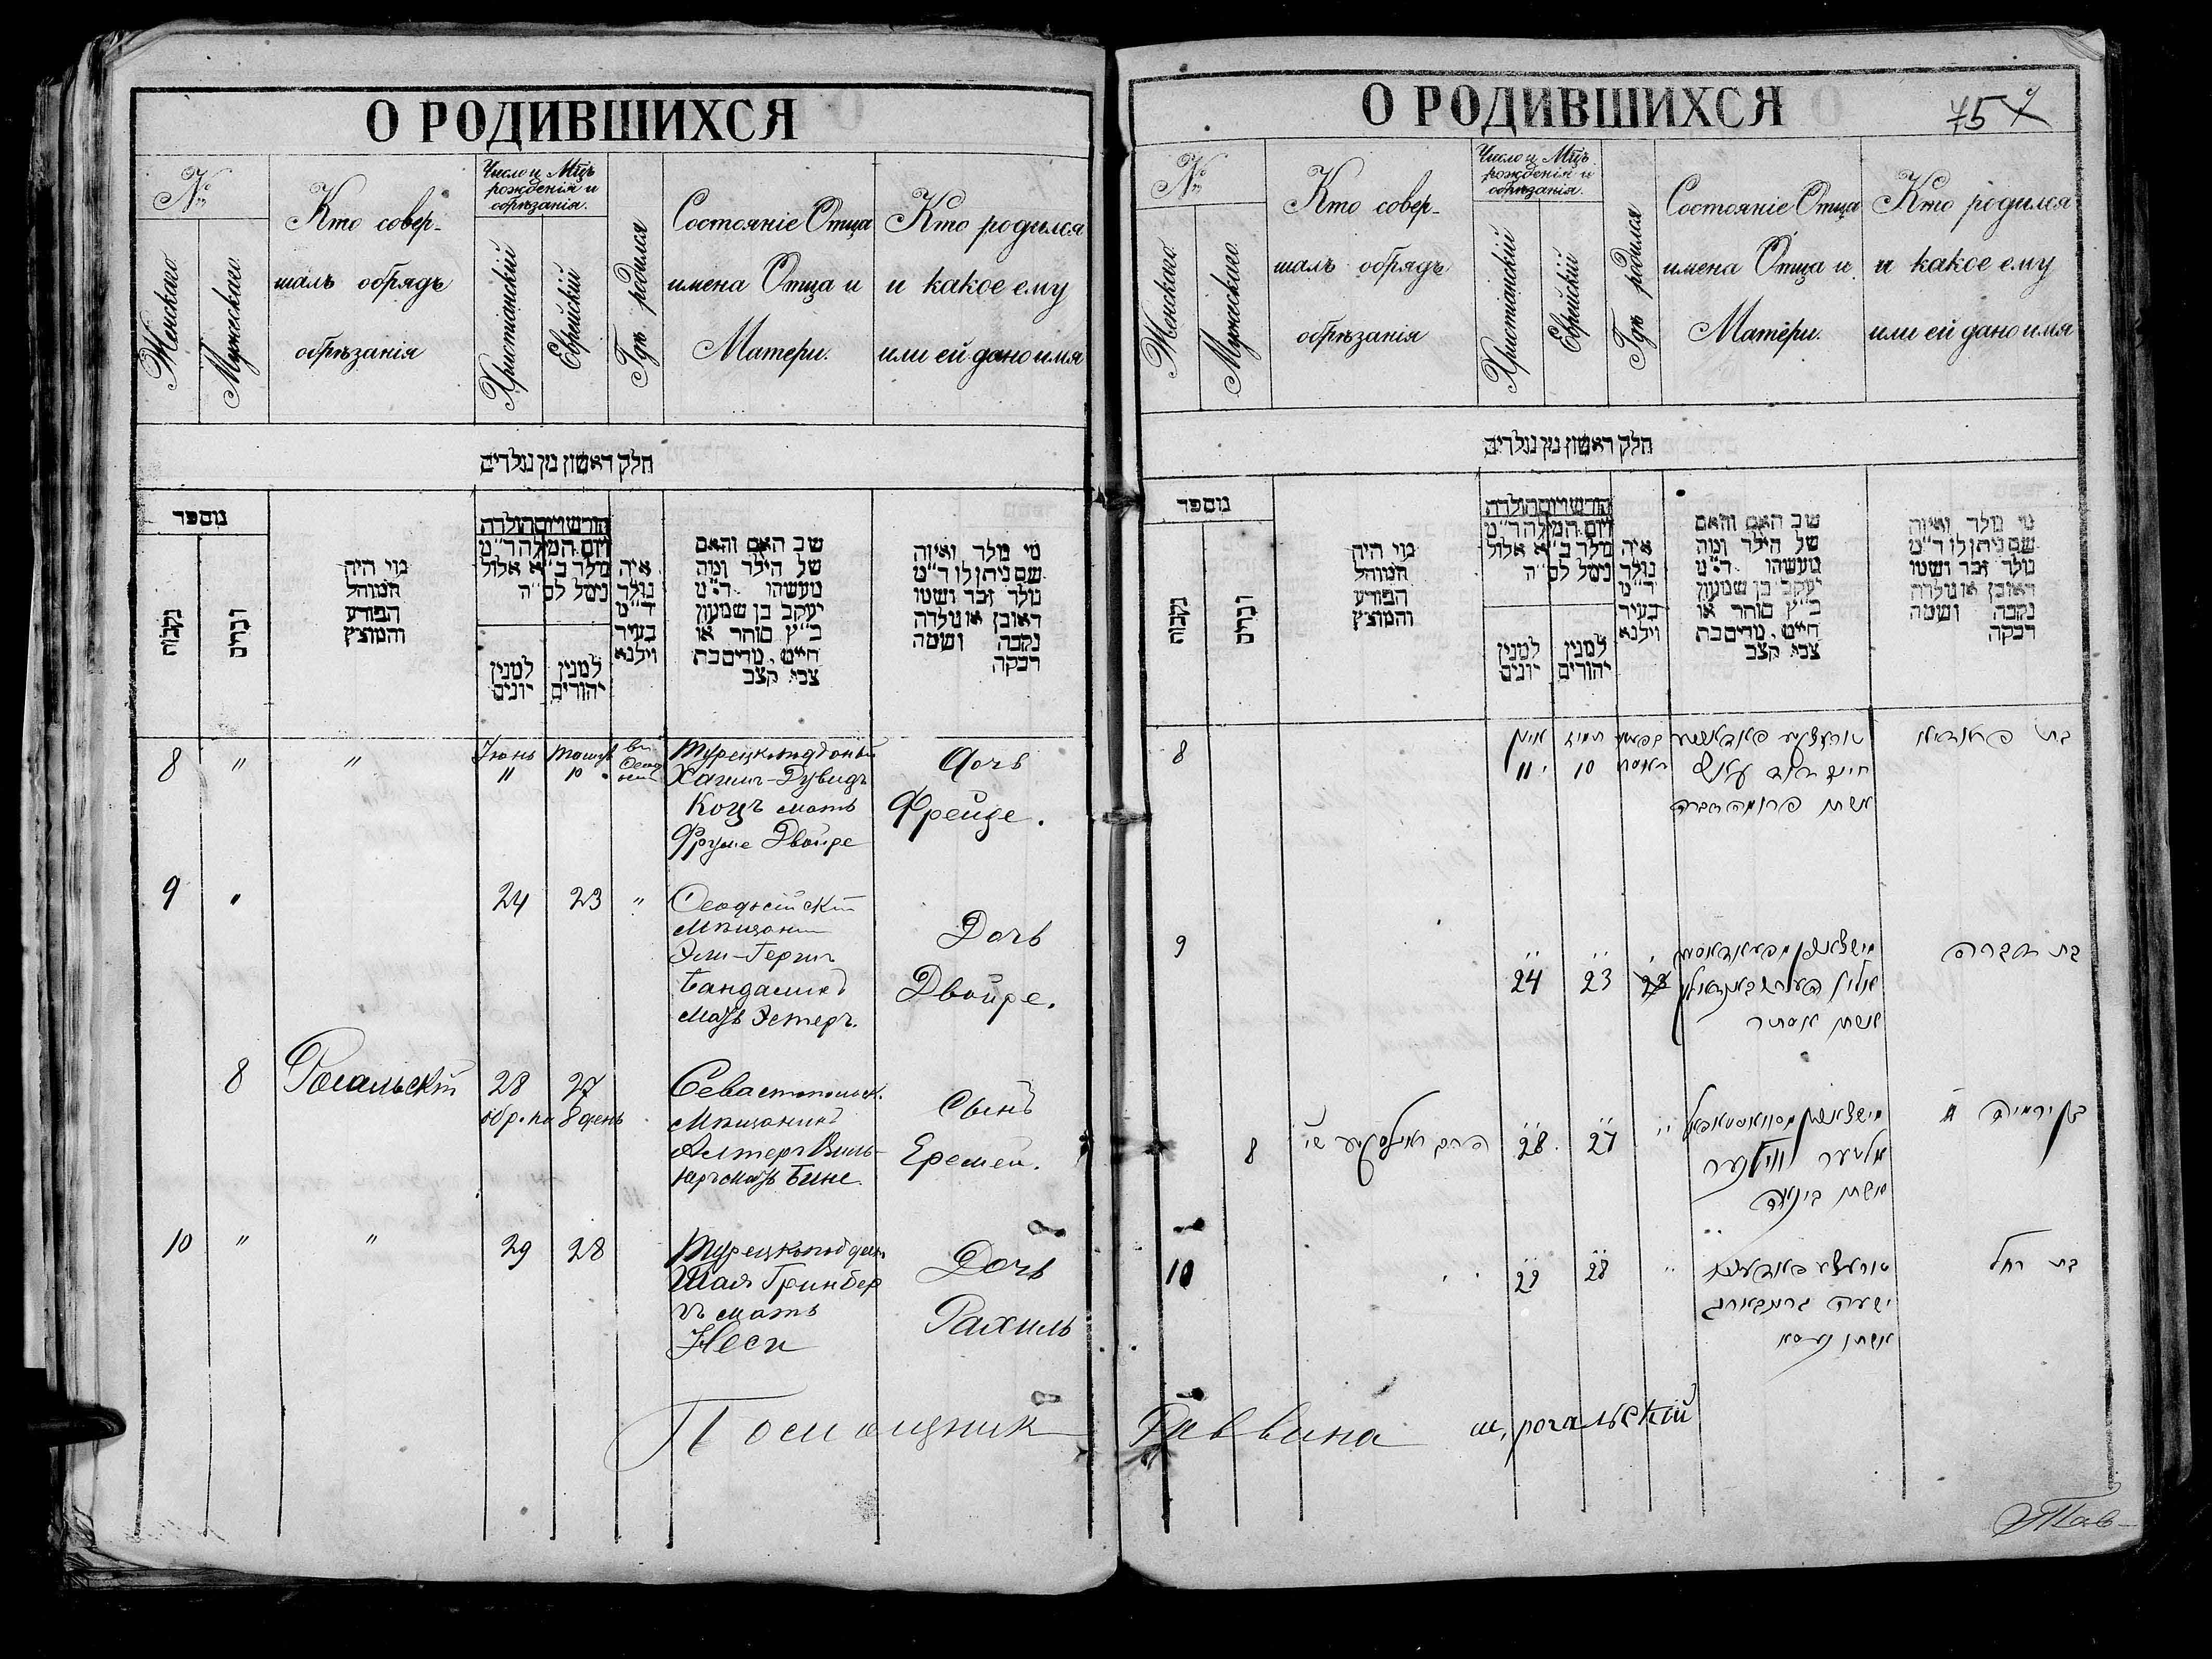 О РОДИВШИХСЯ
№
Женскаго.
Мужескаго.
Кто совер-
шалъ обрядъ
обрѣзанія
Число и Мѣцъ
рожденія и
обрѣзанія.
Христіанскій
Еврейскій
Гдѣ родился
Состояніе Отца
имена Отца и
Матери.
Кто родился
и какое ему
или ей дано имя
חלק ראשון מן נולדים
מספר
נקבות
זכרים
מי היה
המוהל
הפורע
והמוצץ
חודש ויום הולדת
ויום המילה ד״מ
נולד ב״א אלול
נימל לס״ה
למנין
יונים
למנין
יהודים
איה
נולד
ד״מ
בעיר
וילנא
שם האב והאם
של הילד ומה
מעשהו ד״מ
יעקב בן שמעון
כ״ץ סוחר או
חייט, מרים בת
צבי קצב
מי נולד ואיזה
שם ניתן לו ד״מ
נולד זכר ושמו
ראובן או נולדה
נקבה ושמה
רבקה
8 " "
Іюнь
11
10
въ
Турецкоподдоный
Хаимъ-Дувидъ
Коцъ мать
Фруме Двойре
Дочь
Фрейде.
9 "
24 23 "
Ѳеодосійскій
Мѣщанин
Эли-Герш
мать Эстеръ.
Дочь
Двойре.
8 Рогальскій
28 27
обр. на 8 день
Севастопольск.
Мѣщанинъ
Алтеръ Виль-
мать Бине.
Сынъ
Еремей.
10 " "
29 28
Турецкоподдан.
Шая Гринбер
гъ мать
Неси
Дочь
Рахиль
Помощник
О РОДИВШИХСЯ
75
№
Женскаго.
Мужескаго.
Кто совер-
шалъ обрядъ
обрѣзанія
Число и Мѣцъ
рожденія и
обрѣзанія.
Христіанскій
Еврейскій
Гдѣ родился
Состояніе Отца
имена Отца и
Матери.
Кто родился
и какое ему
или ей дано имя
חלק ראשון מן נולדים
מספר
נקבות
זכרים
מי היה
המוהל
הפורע
והמוצץ
חודש ויום הולדת
ויום המילה ד״מ
נולד ב״א אלול
נימל לס״ה
למנין
יונים
למנין
יהודים
איה
נולד
ד״מ
בעיר
וילנא
שם האב והאם
של הילד ומה
מעשהו ד״מ
יעקב בן שמעון
כ״ץ סוחר או
חייט, מרים בת
צבי קצב
מי נולד ואיזה
שם ניתן לו ד״מ
נולד זכר ושמו
ראובן או נולדה
נקבה ושמה
רבקה
8
יוני
11
תמוז
10
חיים דוד
אשתו פרומה דברה
בת
9
24 23
אשתו אסתר
בת דברה
8
28 27
אלטער
אשתו
בן ירמיה
10
29 28
ישעיה גרינבערג
אשתו נעסא
בת רחל
Раввина ш, рогальскій
Тав-